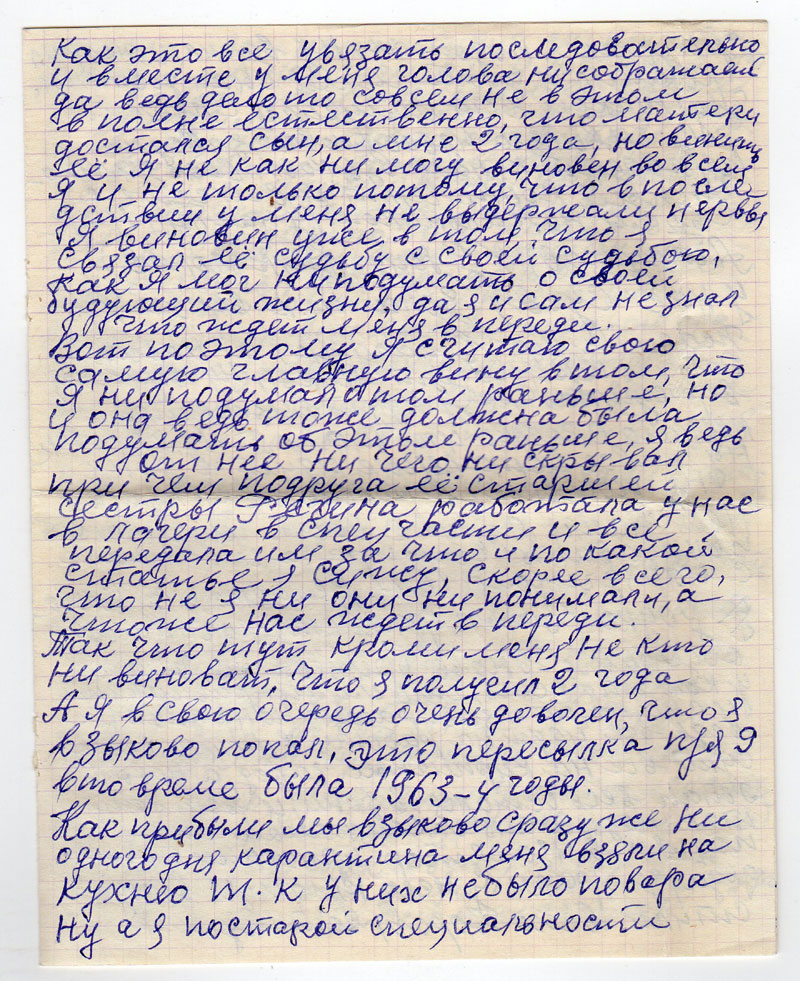 Как это все увязать последовательно
и вместе у меня голова ни соображает
да ведь дело то совсем не в этом
в полне естественно, что матери
достался сын, а мне 2 года, но винить
её я не как ни могу виновен во всем
я и не только потому, что в после-
дствии у меня не выдержали нервы
Я виновин уже в том, что я
связал её судьбу с своей судьбою,
как я мог ни подумать о своей
будующий жизни, да я и сам не знал
что ждет меня в переди.
Вот по этому я считаю свою
самую главную вину в том, что
я ни подумал о том раньше, но
и она ведь тоже должна была
подумать об этом раньше, я ведь
от неё ни чего ни скрывал
при чем подруга её старшей
сестры работала у нас
в лагери в спец части и все
передала им за что и по какой
статье я сижу, скорее всего,
что не я ни они ни понимали, а
что же нас ждет в переди.
Так что тут кроми меня не кто
ни виноват, что я полусил 2 года
А я в свою очередь очень доволен, что я
в зыково попал, это пересылка п/я 9
в то време была 1963-у годы.
Как прибыли мы в зыково сразу же ни
одного дня карантина меня взяли на
кухню т. к у них небыло повара
ну а я постарой специальности